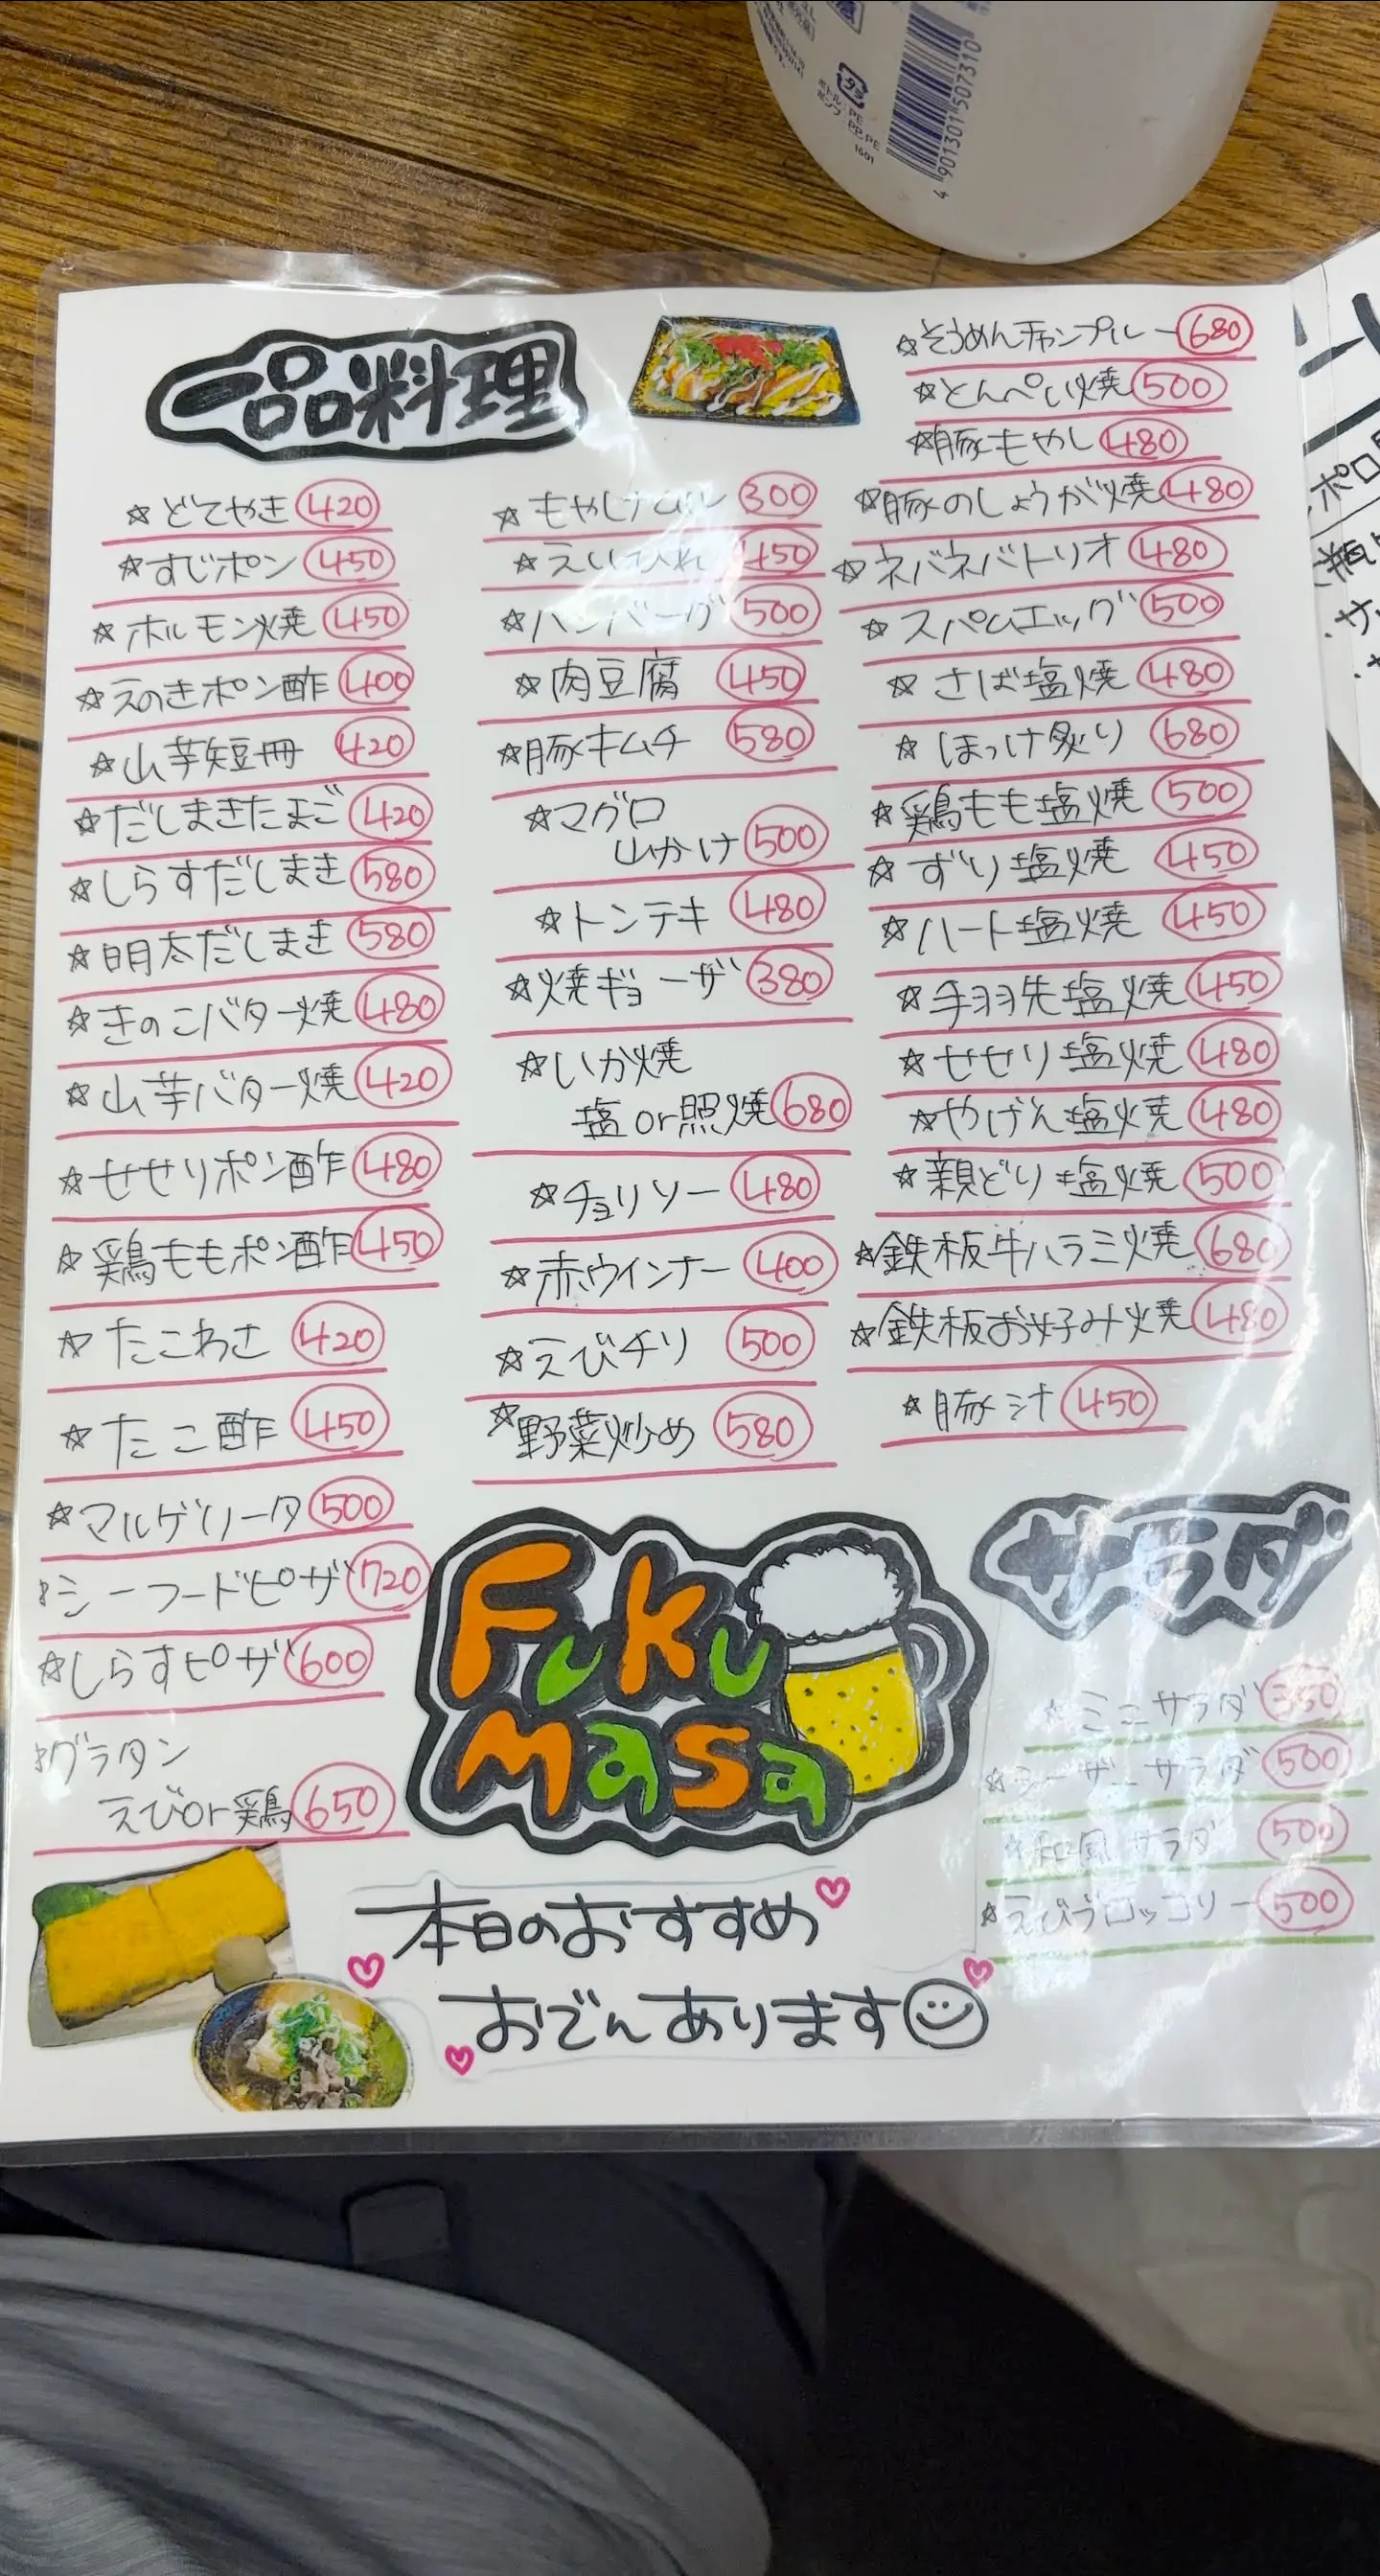 4 901301 507310
ボトル: PE
ポンプ: PP, PE
1601
一品料理
☆どてやき 420
☆すじポン 450
☆ホルモン焼 450
☆えのきポン酢 400
☆山芋短冊 420
☆だしまきたまご 420
☆しらすだしまき 580
☆明太だしまき 580
☆きのこバター焼 480
☆山芋バター焼 420
☆せせりポン酢 480
☆鶏ももポン酢 450
☆たこわさ 420
☆たこ酢 450
☆マルゲリータ 500
☆シーフードピザ 720
☆しらすピザ 600
☆グラタン
えびor鶏 650
☆もやしナムル 300
☆えいひれ 450
☆ハンバーグ 500
☆肉豆腐 450
☆豚キムチ 580
☆マグロ
山かけ 500
☆トンテキ 480
☆焼ギョーザ 380
☆いか焼
塩or照焼 680
☆チョリソー 480
☆赤ウインナー 400
☆えびチリ 500
☆野菜炒め 580
☆そうめんチャンプルー 680
☆とんぺい焼 500
☆豚もやし 480
☆豚のしょうが焼 480
☆ネバネバトリオ 480
☆スパムエッグ 500
☆さば塩焼 480
☆ほっけ炙り 680
☆鶏もも塩焼 500
☆ずり塩焼 450
☆ハート塩焼 450
☆手羽先塩焼 450
☆せせり塩焼 480
☆やげん塩焼 480
☆親どり塩焼 500
☆鉄板牛ハラミ焼 680
☆鉄板お好み焼 480
☆豚汁 450
Fuku
masa
サラダ
☆ミニサラダ 350
☆シーザーサラダ 500
☆和風サラダ 500
☆えびブロッコリー 500
本日のおすすめ
おでんあります